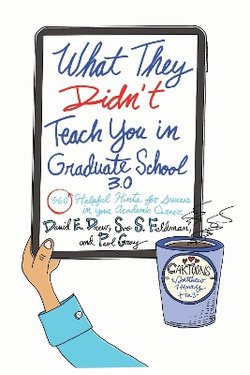 What They
Didn't
Teach You in
Graduate School
3.0
360 Helpful Hints for Success
in your Academic Career
David E. Drew, Sue S. Feldman,
and Paul Gray
CARTOONS
Matthew Henry